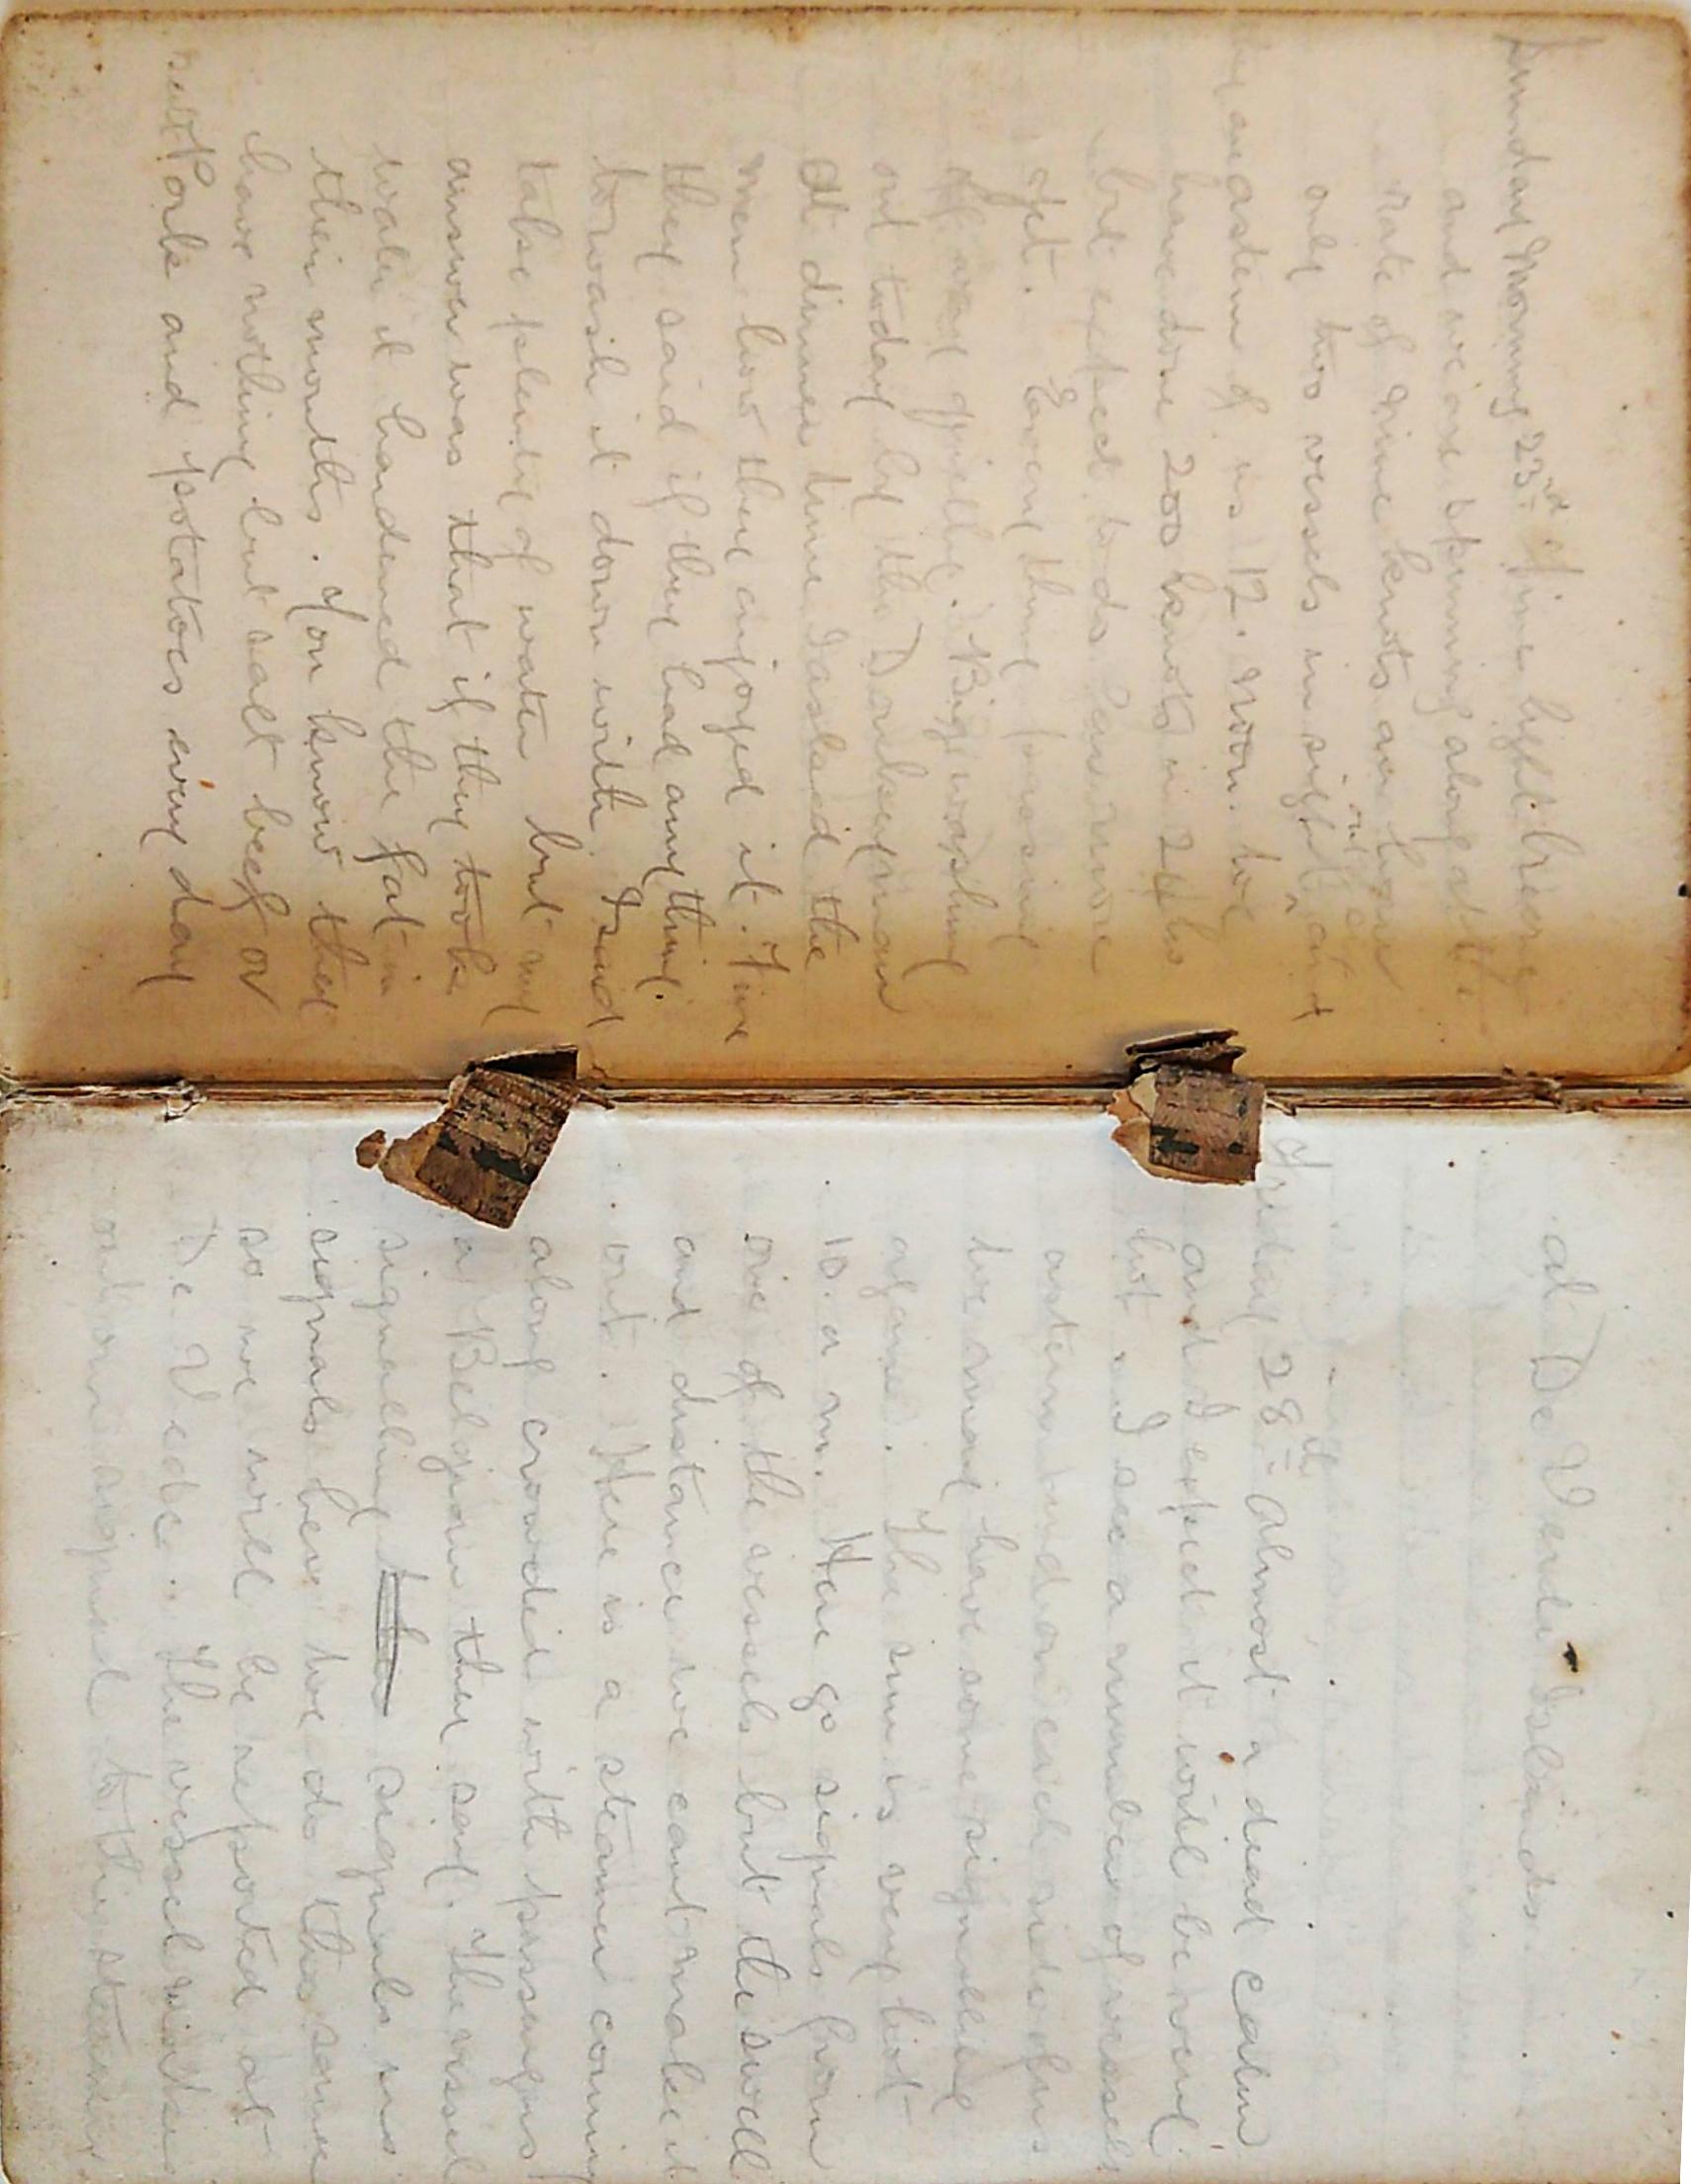 Sunday Morning 23rd Fine light breeze
and we are spinning along at the
rate of nine knots an hour
only two vessels in sight one ahead
astern of us 12. noon. we
have done 200 knots in 24 hrs
but expect to do less more
yet. Every thing passing
off very quietly. Big washing
out today by the Donkeyman
At dinner time I asked the
men how they enjoyed it. Fine
they said if they had anything
to wash it down with. I said
take plenty of water but my
answer was that if they took
water it hardened the fat in
their mouths. You know they
have nothing but salt beef or
salt Pork and potatoes every day
at De Verde Islands.
Friday 28th Almost a dead calm
and I expect it will be very
hot. I see a number of vessels
astern and on each side of us
we may have some signalling
again. The sun is very hot
10. a m. Here go signals from
one of the vessels but the swell
and distance we cant make it
out. Here is a steamer coming
along crowded with passengers
a Belgian they say. The vessel
signalling the signals us
signals her. We do the same
so we will be reported at
De Vede. The vessel
our own signal to the steamer